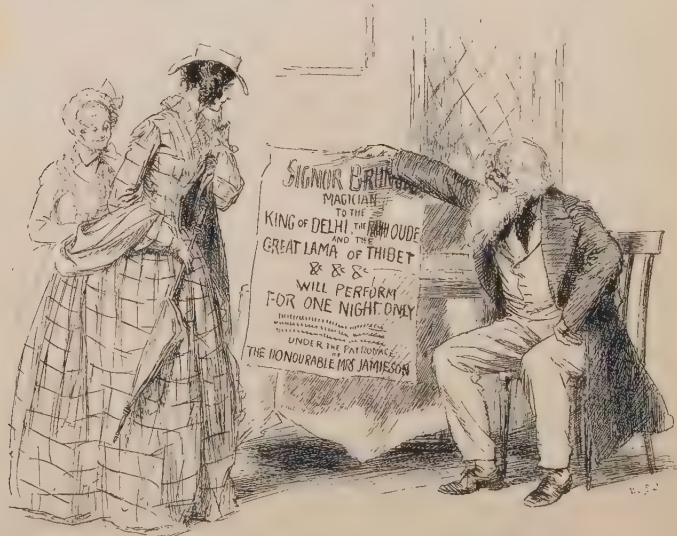 SIGNOR
MAGICIAN
TO THE
KING OF DELHI, THE OUDE
AND THE
GREAT LAMA OF THIBET
&c &c &c
WILL PERFORM
FOR ONE NIGHT ONLY
UNDER THE PATRONAGE
OF
THE HONOURABLE MRS JAMIESON